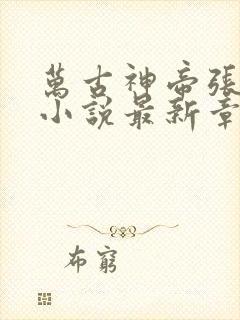 萬古神帝張
小說最新章
布窮